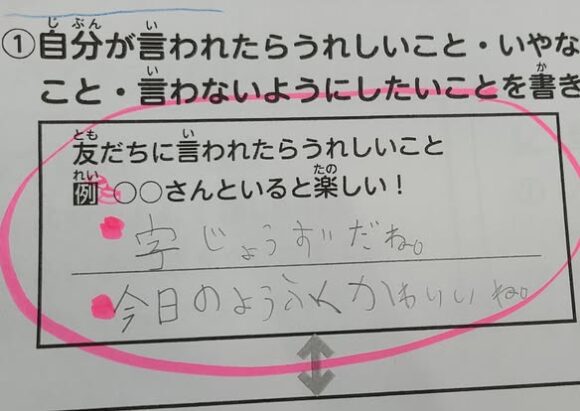 ①自分が言われたらうれしいこと・いやな
こと・言わないようにしたいことを書き
友だちに言われたらうれしいこと
例 ○○さんといると楽しい！
字じょうずだね。
今日のようふくかわいいね。